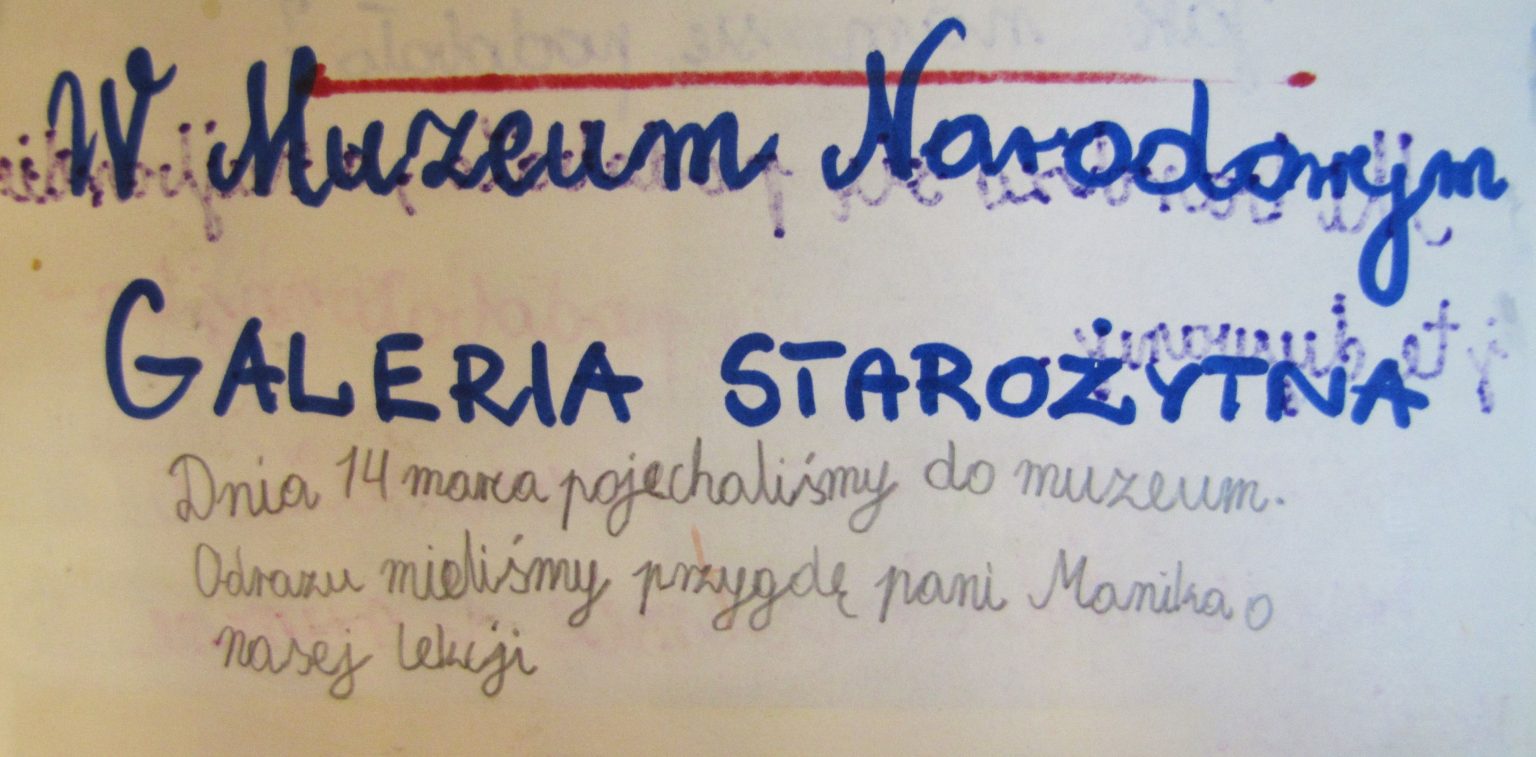 W Muzeum Narodowym
GALERIA STAROŻYTNA
Dnia 14 marca pojechaliśmy do muzeum.
Odrazu mieliśmy przygdę pani Monika o
nasej lekcji